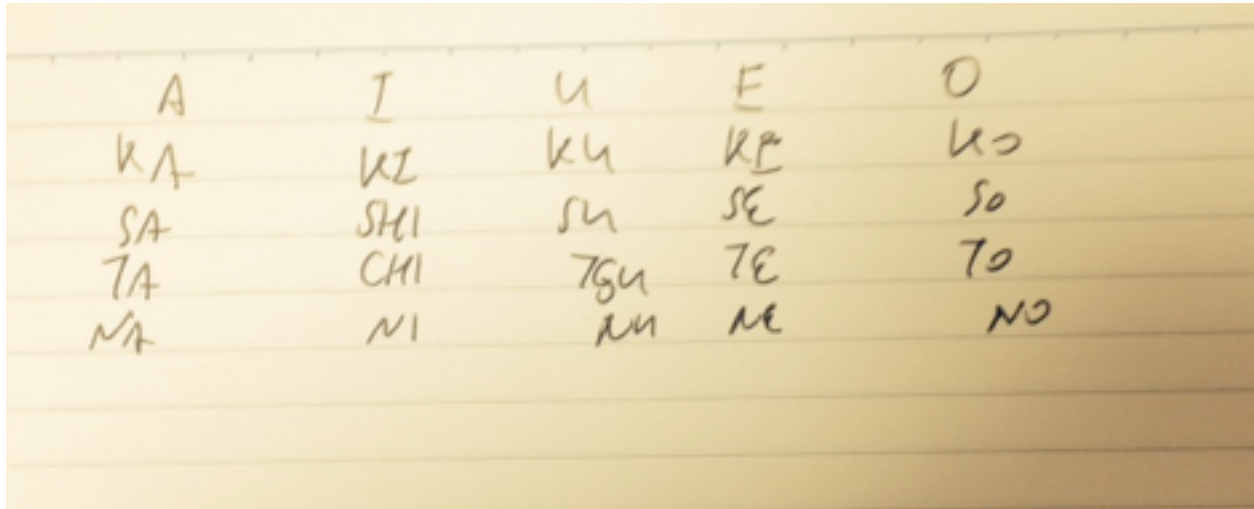 A I U E O
KA KI KU KE KO
SA SHI SU SE SO
TA CHI TSU TE TO
NA NI NU NE NO